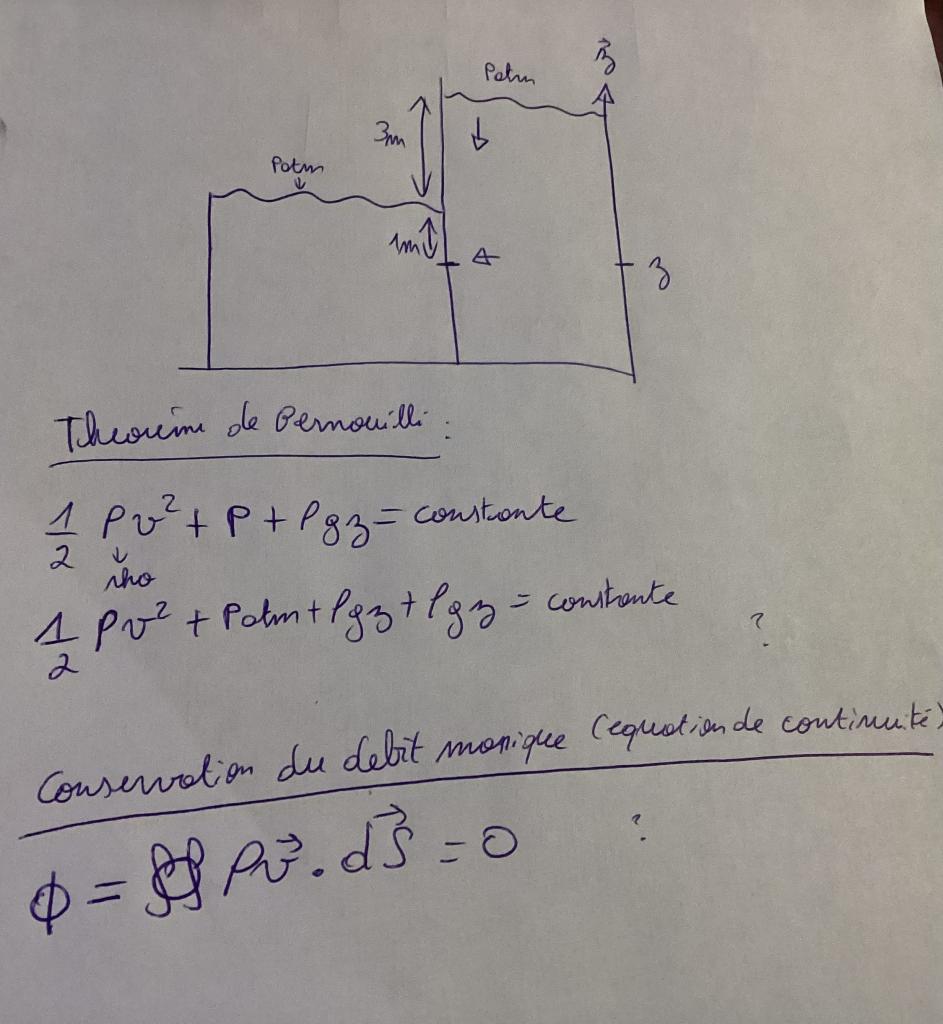 z⃗
Patm
3m
Patm
1m
z
Théorème de Bernouilli :
1/2 ρv² + P + ρgz = constante
rho
1/2 ρv² + Patm + ρgz + ρgz = constante ?
Conservation du debit massique (equation de continuité)
ϕ = ∯ ρv⃗ . dS⃗ = 0 ?